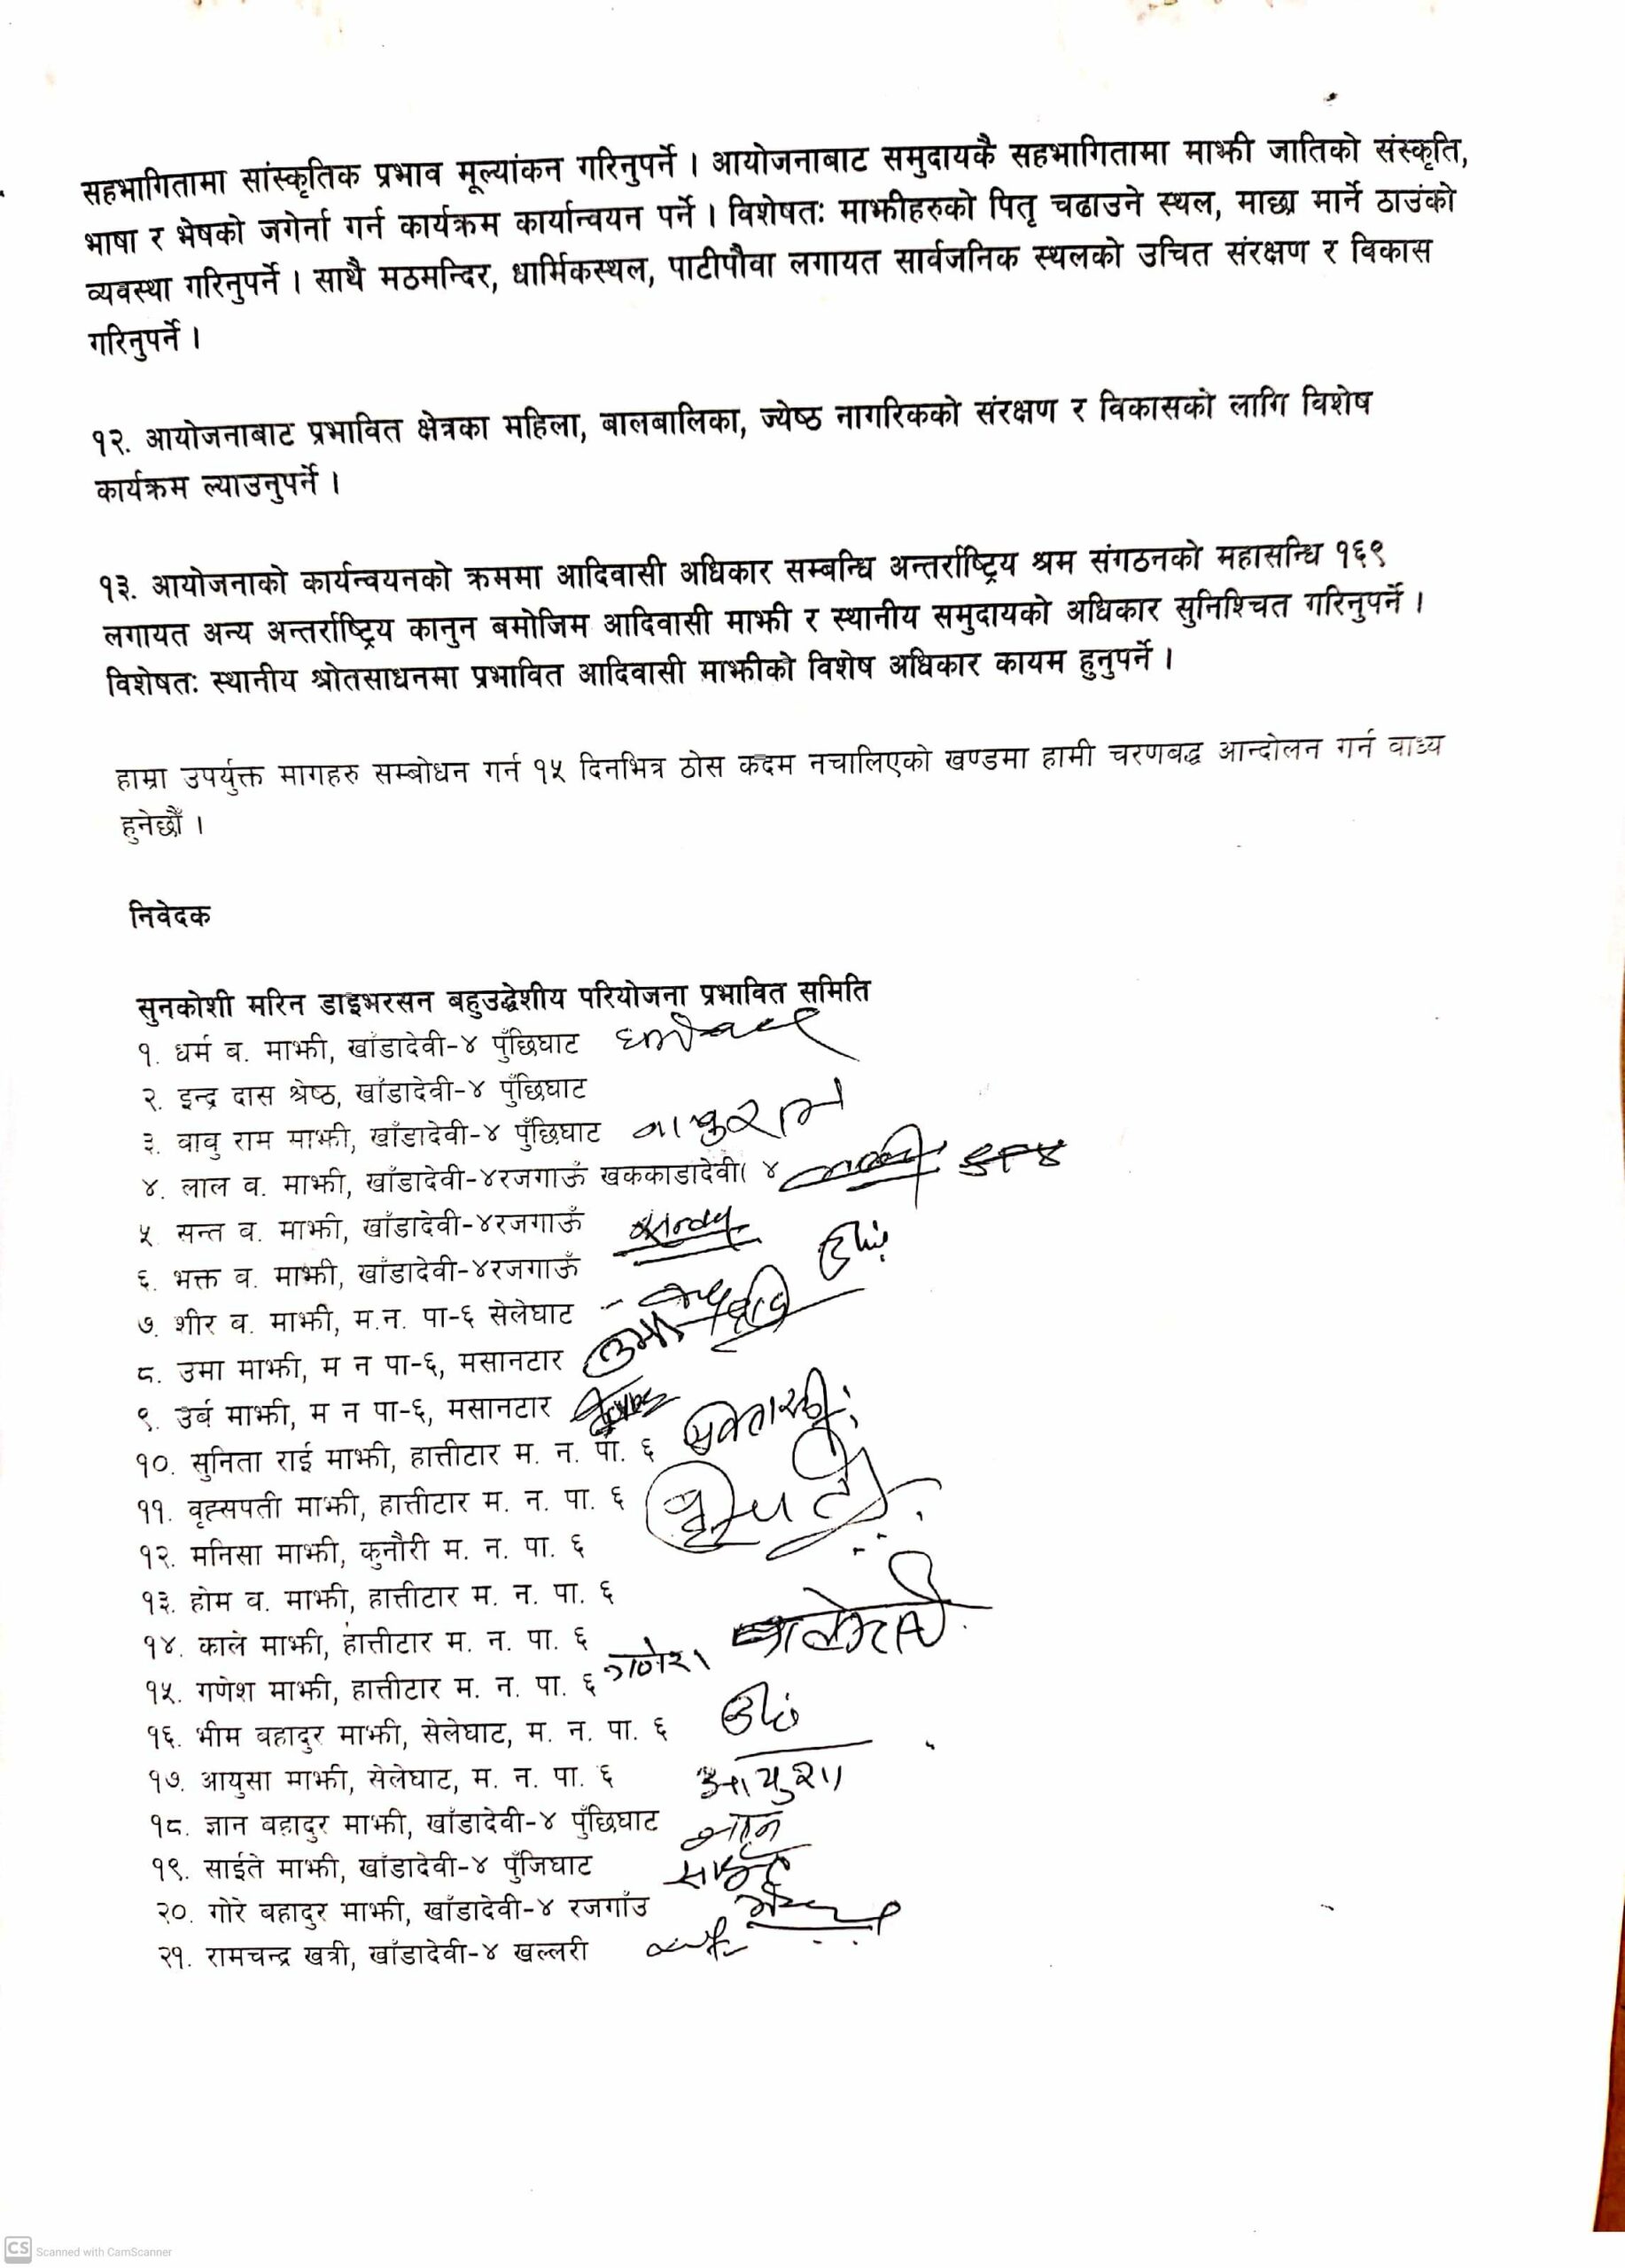 सहभागितामा सांस्कृतिक प्रभाव मूल्यांकन गरिनुपर्ने । आयोजनाबाट समुदायकै सहभागितामा माझी जातिको संस्कृति,
भाषा र भेषको जगेर्ना गर्न कार्यक्रम कार्यान्वयन पर्ने । विशेषतः माझीहरुको पितृ चढाउने स्थल, माछा मार्ने ठाउंको
व्यवस्था गरिनुपर्ने । साथै मठमन्दिर, धार्मिकस्थल, पाटीपौवा लगायत सार्वजनिक स्थलको उचित संरक्षण र विकास
गरिनुपर्ने ।
१२. आयोजनाबाट प्रभावित क्षेत्रका महिला, बालबालिका, ज्येष्ठ नागरिकको संरक्षण र विकासको लागि विशेष
कार्यक्रम ल्याउनुपर्ने ।
१३. आयोजनाको कार्यन्वयनको क्रममा आदिवासी अधिकार सम्बन्धि अन्तर्राष्ट्रिय श्रम संगठनको महासन्धि १६९
लगायत अन्य अन्तर्राष्ट्रिय कानुन बमोजिम आदिवासी माझी र स्थानीय समुदायको अधिकार सुनिश्चित गरिनुपर्ने ।
विशेषतः स्थानीय श्रोतसाधनमा प्रभावित आदिवासी माझीको विशेष अधिकार कायम हुनुपर्ने ।
हाम्रा उपर्युक्त मागहरु सम्बोधन गर्न १५ दिनभित्र ठोस कदम नचालिएको खण्डमा हामी चरणबद्ध आन्दोलन गर्न वाध्य
हुनेछौं ।
निवेदक
सुनकोशी मरिन डाइभरसन बहुउद्धेशीय परियोजना प्रभावित समिति
१. धर्म ब. माझी, खाँडादेवी-४ पुँछिघाट
२. इन्द्र दास श्रेष्ठ, खाँडादेवी-४ पुँछिघाट
३. वावु राम माझी, खाँडादेवी-४ पुँछिघाट वाबुराम
४. लाल व. माझी, खाँडादेवी-४रजगाऊँ खककाडादेवी( ४
५ सन्त व. माझी, खाँडादेवी-४रजगाऊँ
६. भक्त व. माझी, खाँडादेवी-४रजगाऊँ
७. शीर व. माझी, म.न. पा-६ सेलेघाट
८. उमा माझी, म न पा-६, मसानटार उमा
९. उर्ब माझी, म न पा-६, मसानटार
१०. सुनिता राई माझी, हात्तीटार म. न. पा. ६
११. वृह्सपती माझी, हात्तीटार म. न. पा. ६
१२. मनिसा माझी, कुनौरी म. न. पा. ६
१३. होम व. माझी, हात्तीटार म. न. पा. ६
१४. काले माझी, हात्तीटार म. न. पा. ६
१५. गणेश माझी, हात्तीटार म. न. पा. ६ गणेश
१६. भीम बहादुर माझी, सेलेघाट, म. न. पा. ६
१७. आयुसा माझी, सेलेघाट, म. न. पा. ६ आयुशा
१८. ज्ञान बहादुर माझी, खाँडादेवी-४ पुँछिघाट
१९. साईते माझी, खाँडादेवी-४ पुँजिघाट
२०. गोरे बहादुर माझी, खाँडादेवी-४ रजगाँउ
२१. रामचन्द्र खत्री, खाँडादेवी-४ खल्लरी
CS Scanned with CamScanner